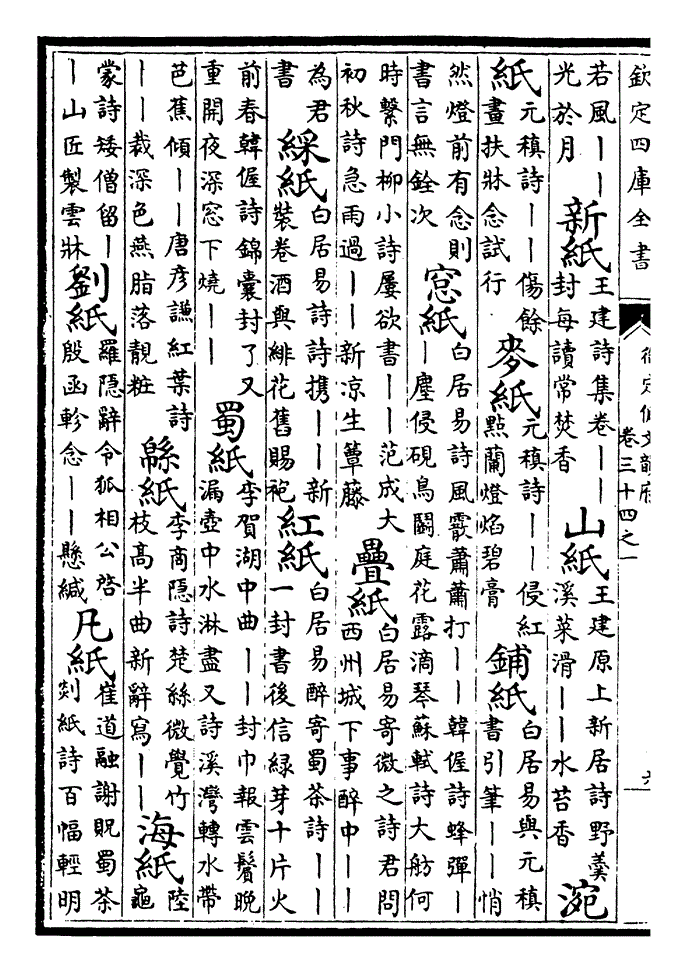 欽定四庫全書
卷三十四之一
若風丨丨
光於月
新紙
王建詩集卷丨丨
封每讀常焚香
山紙
王建原上新居詩野羹
溪菜滑丨丨水苔香
涴
紙
元稹詩丨丨傷餘
畫扶牀念試行
麥紙
元稹詩丨丨侵紅
點蘭燈焰碧膏
鋪紙
白居易與元稹
書引筆丨丨悄
然燈前有念則
書言無銓次
窓紙
白居易詩風霰蕭蕭打丨丨韓偓詩蜂彈丨
丨塵侵硯鳥鬬庭花露滴琴蘇軾詩大舫何
時繫門柳小詩屢欲書丨丨范成大
初秋詩急雨過丨丨新凉生簟藤
疊紙
白居易寄微之詩君問
西州城下事醉中丨丨
為君
書
綵紙
白居易詩詩携丨丨新
裝卷酒與緋花舊賜袍
紅紙
白居易醉寄蜀茶詩丨丨
一封書後信緑芽十片火
前春韓偓詩錦囊封了又
重開夜深窓下燒丨丨
蜀紙
李賀湖中曲丨丨封巾報雲鬟晚
漏壺中水淋盡又詩溪灣轉水帶
芭蕉傾丨丨唐彦謙紅葉詩
丨丨裁深色燕脂落靚粧
緜紙
李商隱詩楚絲微覺竹
枝高半曲新辭寫丨丨
海紙
陸
龜
蒙詩矮僧留丨
丨山匠製雲牀
劉紙
羅隱辭令狐相公啓
殷函軫念丨丨懸緘
凡紙
崔道融謝貺蜀茶
剡紙詩百幅輕明